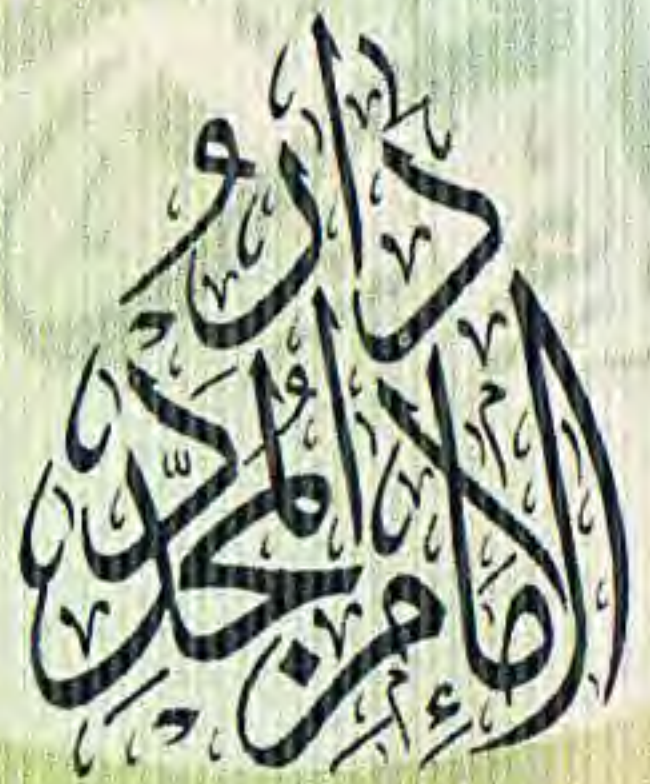 دَارُ
الإمَامِ المُجَدِّدِ